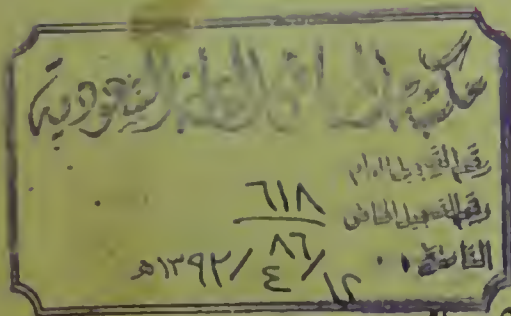 مكتبة الرياض العامة السعودية
رقم التسجيل العام
رقم التسجيل الخاص ٦١٨
٨٦
التاريخ ١٢/٤/١٣٩٢هـ